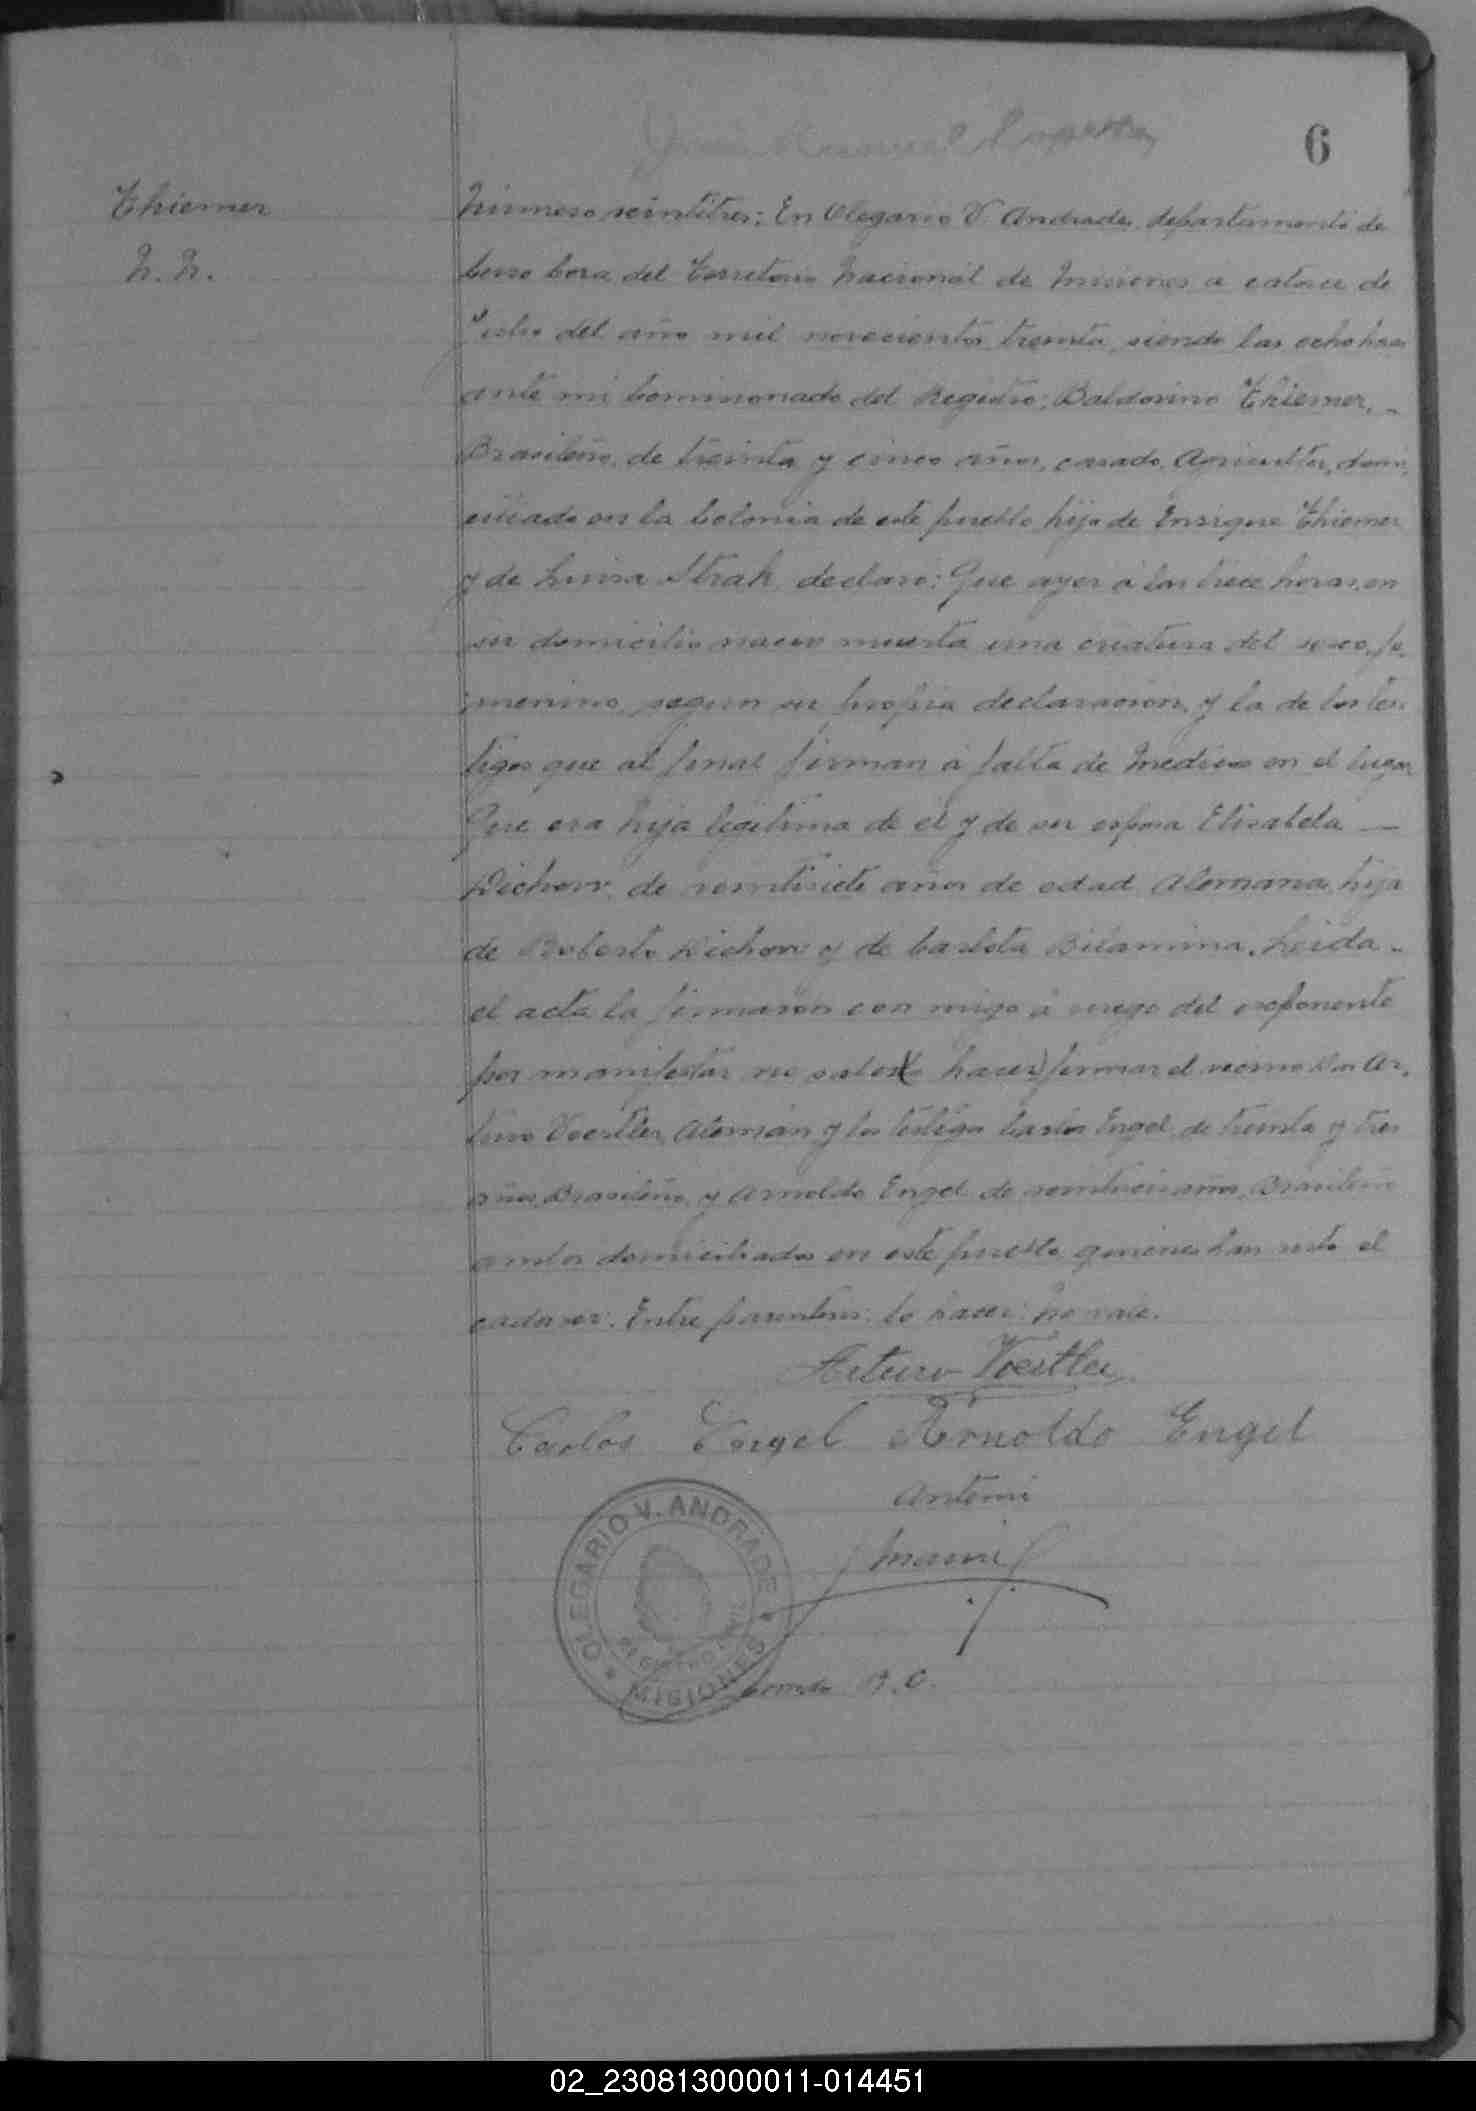 6
Thiemer
N. N.
Número veintitres: En Olegario V. Andrade, departamento de
Cerro Cora del Territorio Nacional de Misiones a catorce de
del año mil novecientos treinta, siendo las ocho horas
ante mi Comisionado del Registro; Baldovino Thiemer,
Brasileño, de treinta y cinco años, casado, Agricultor, domi
ciliado en la Colonia de este pueblo hijo de Enrique Thiemer
y de Luisa Strah, declaró: Que ayer á las trece horas, en
su domicilio nacio muerta una criatura del sexo fe-
menino, segun su propia declaración, y la de los tes-
tigos que al final firman á falta de Medico en el lugar
Que era hija legitima de el y de su esposa Elisabeta —
Dichow, de veintisiete años de edad, Alemana, hija
de Roberto Dichow y de Carlota Bilamina. Leida
el acta la firmaron con migo á ruego del exponente
por manifestar no saber (lo hacer) firmar el vecino Don Ar-
turo Voestler, Alemán y los testigos Carlos Engel de treinta y tres
años, Brasileño, y Arnoldo Engel de veintiseis años, Brasileño
ambos domiciliados en este pueblo, quienes han visto el
cadaver. Entre parentesis: lo hacer: no vale.
Arturo Voestler
Carlos Engel Arnoldo Engel
Antemi
OLEGARIO V. ANDRADE
REGISTRO CIVIL
MISIONES
02_230813000011-014451